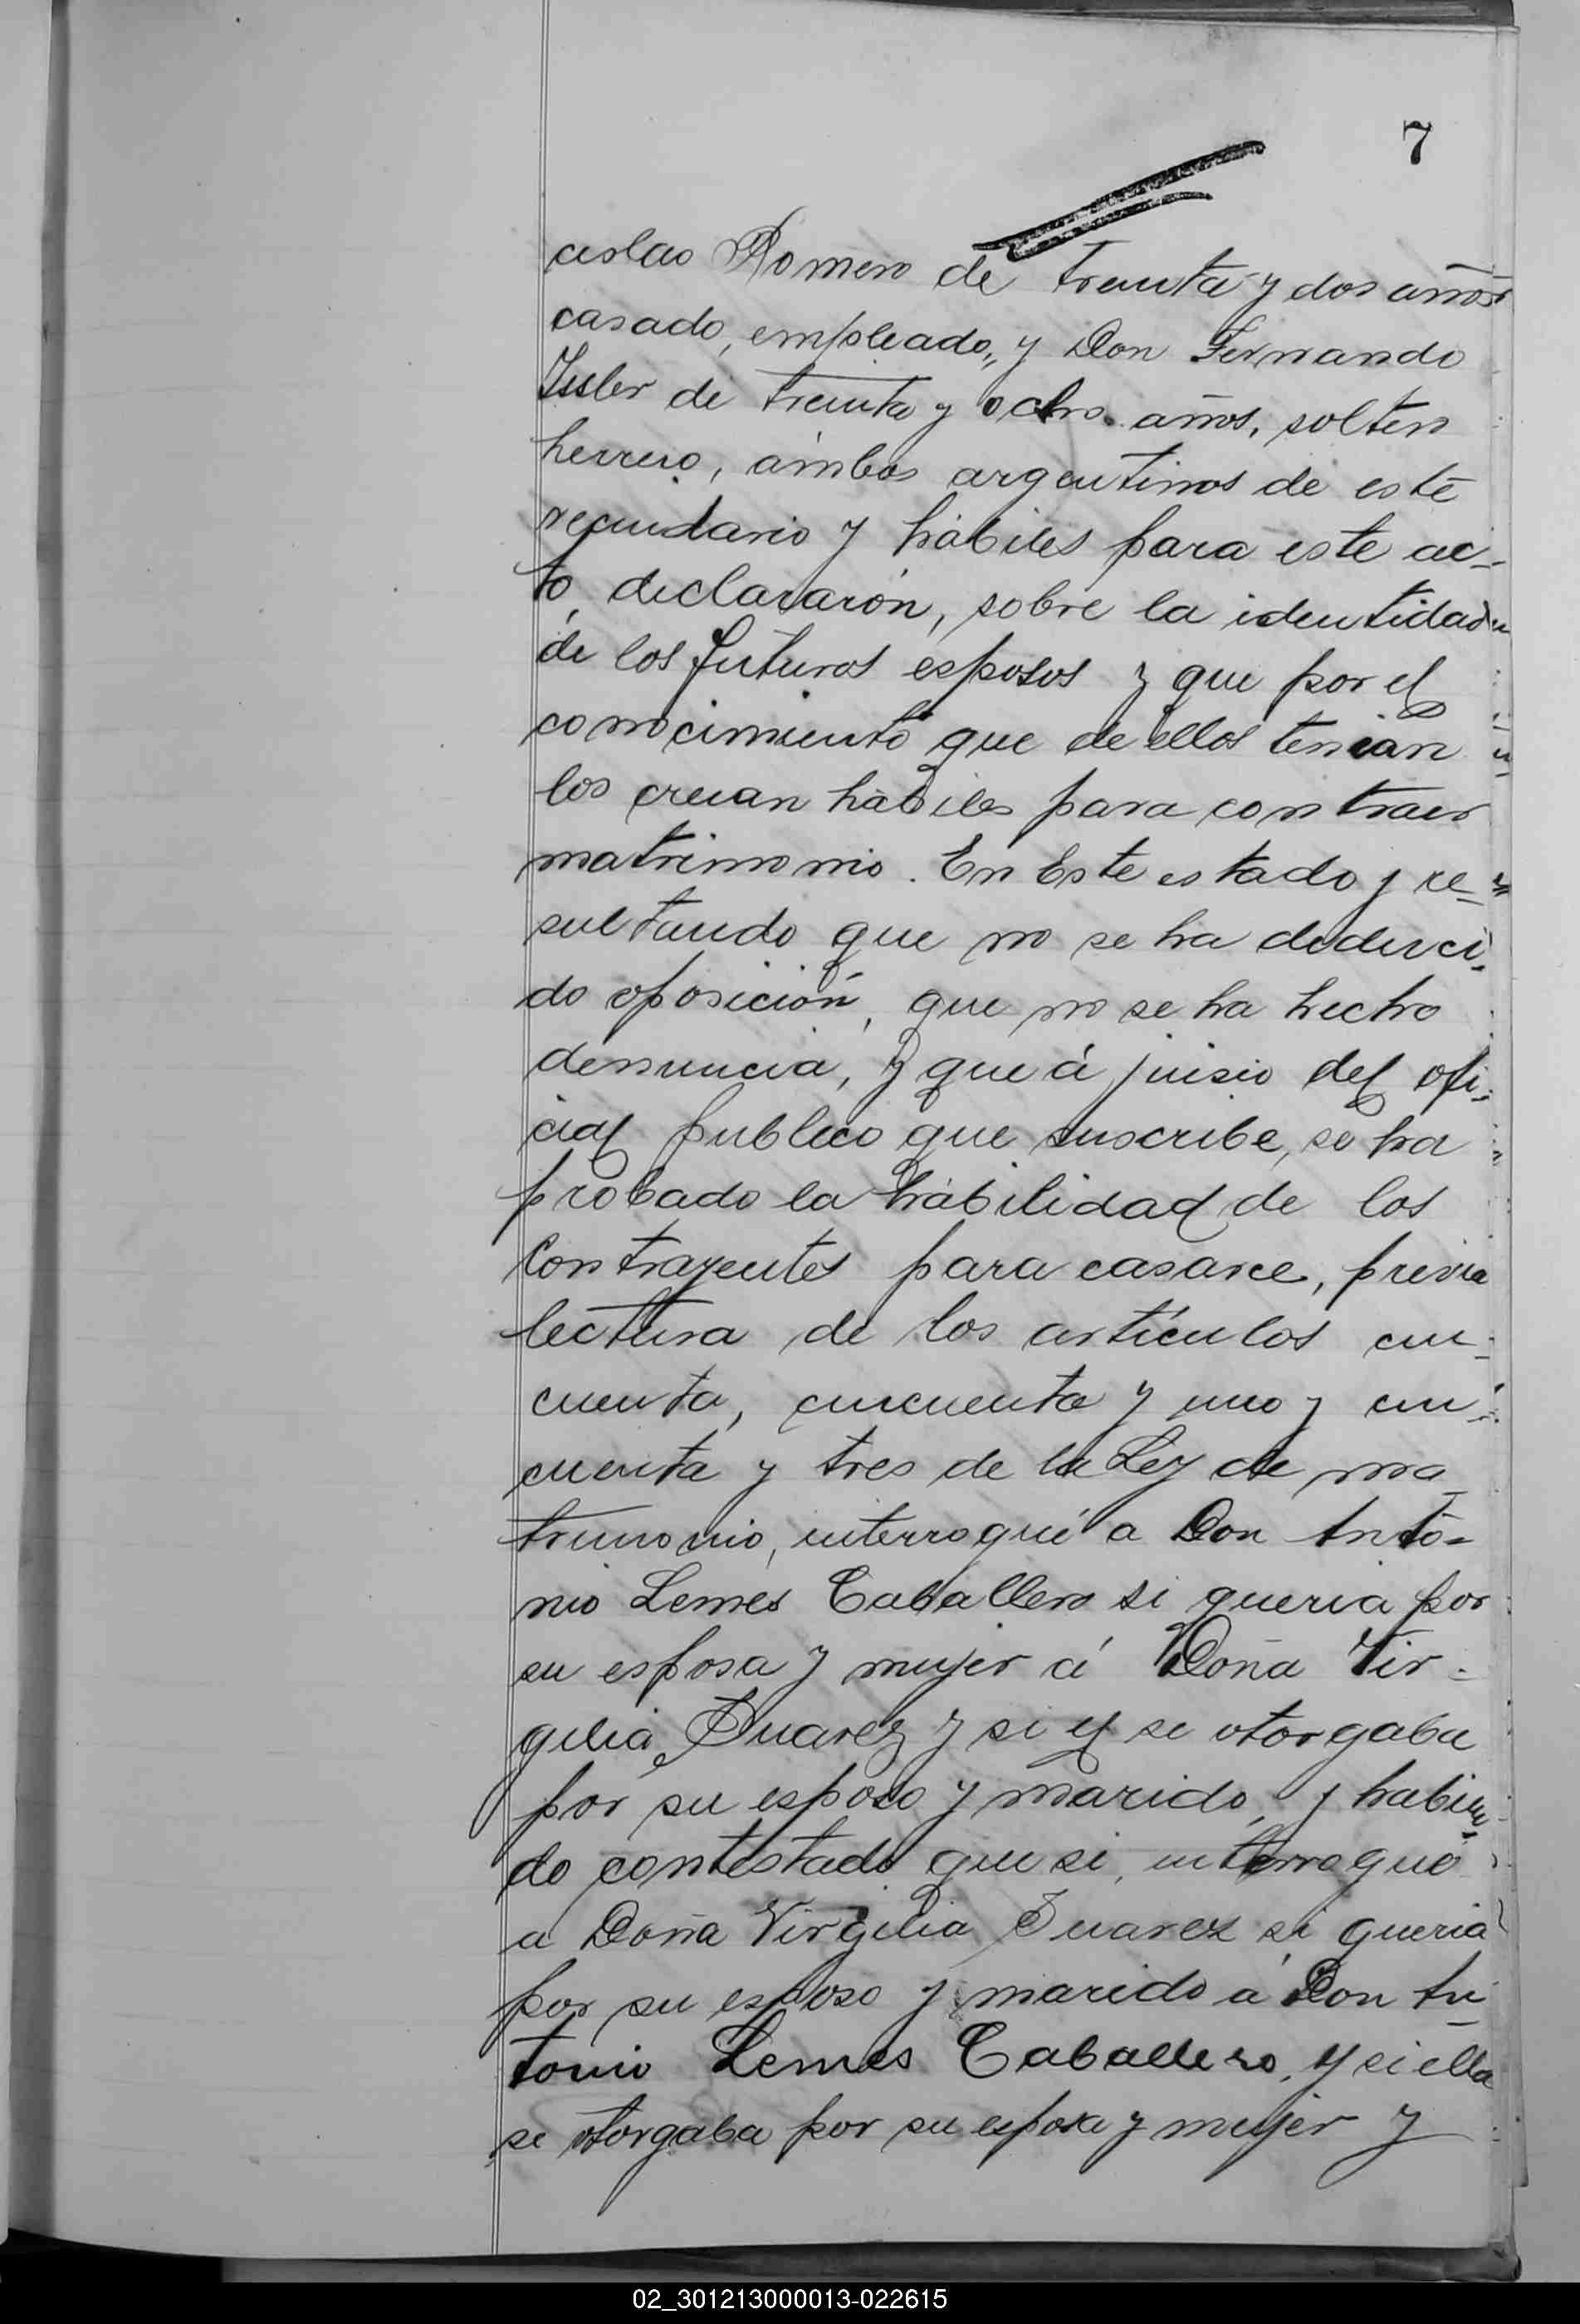 7
ceslao Romero de treinta y dos años
casado, empleado, y Don Fernando
Issler de treinta y ocho años, soltero
herrero, ámbos argentinos de este
vecindario y hábiles para este ac-
to, declararón, sobre la identidad
de los futuros esposos y que por el
conocimiento que de ellos tenian
los creian hábiles para contraer
matrimonio. En Este estado y re-
sultando que no se ha deduci-
do oposición, que no se ha hecho
denuncia, y que á juisio del ofi-
cial publico que suscribe, se ha
probado la hábilidad de los
Contrayentes para casarce, previa
lectura de los artículos cin-
cuenta, cincuenta y uno y cin-
cuenta y tres de la Ley de ma-
trimonio, interrogué a Don Anto-
nio Lemes Caballero si queria por
su esposa y mujer á Doña Vir-
gilia Suarez y si el se otorgaba
por su esposo y marido, y habien-
do contestado que si, interrogué
a Doña Virgilia Suarez si queria
por su esposo y marido á Don An-
tonio Lemes Caballero, y si ella
se otorgaba por su esposa y mujer y
02_301213000013-022615